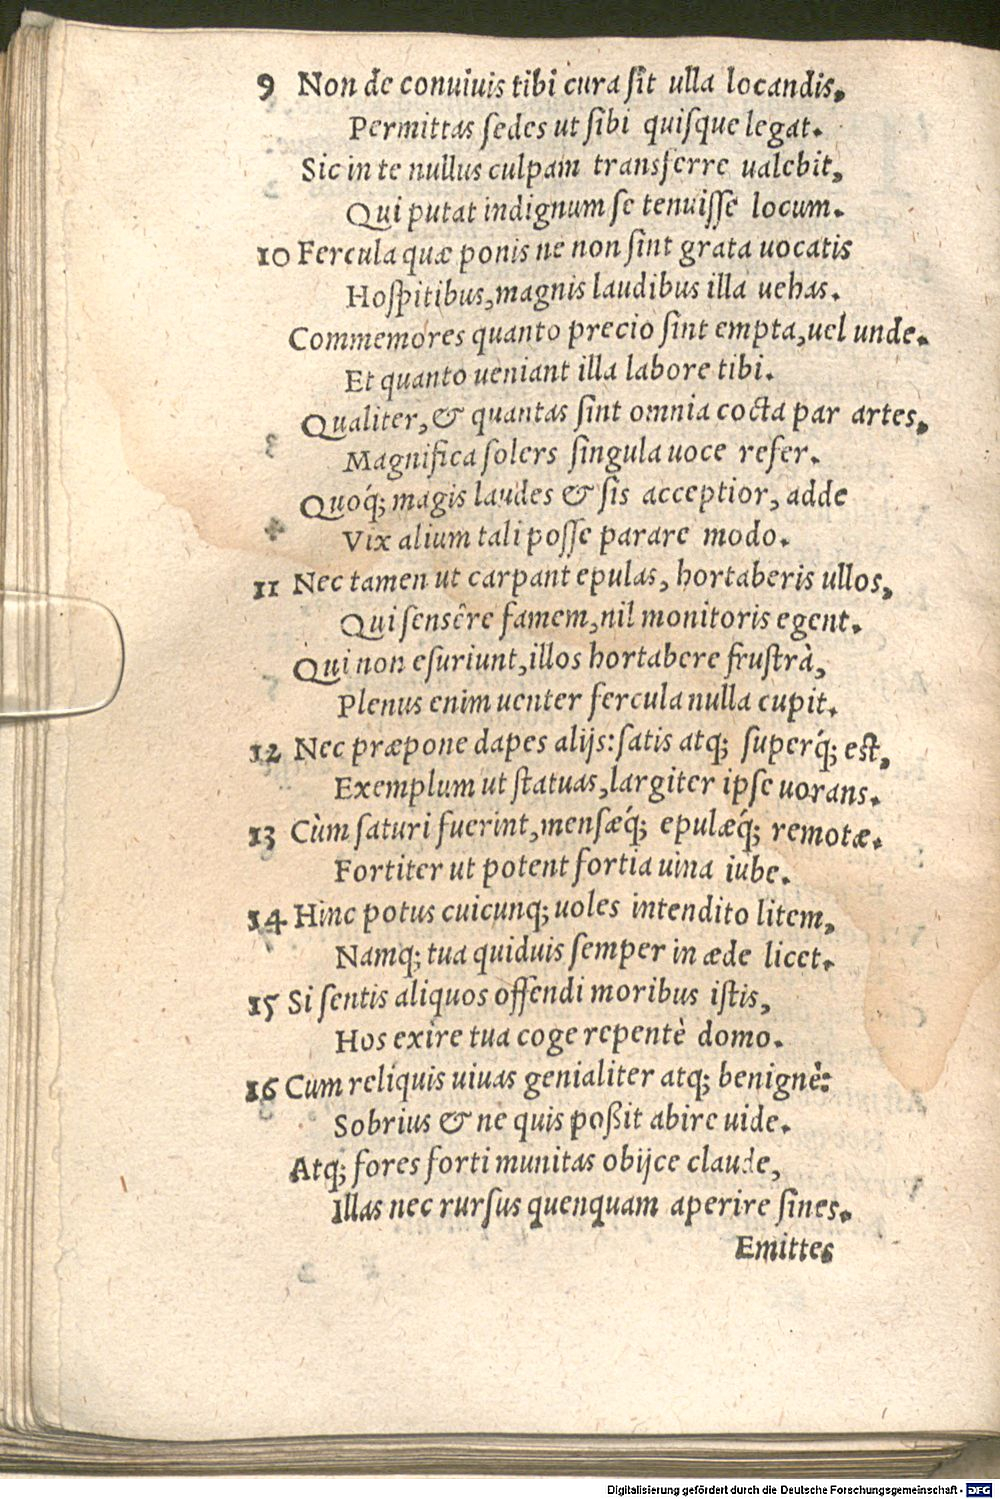 9 Non de conuiuis tibi cura sit ulla locandis,
Permittas sedes ut sibi quisque legat.
Sic in te nullus culpam transferre ualebit,
Qui putat indignum se tenuisse locum.
10 Fercula quæ ponis ne non sint grata uocatis
Hospitibus, magnis laudibus illa uehas.
Commemores quanto precio sint empta, uel unde.
Et quanto ueniant illa labore tibi.
Qualiter, & quantas sint omnia cocta par artes,
Magnifica solers singula uoce refer.
Quoq́; magis laudes & sis acceptior, adde
Vix alium tali posse parare modo.
11 Nec tamen ut carpant epulas, hortaberis ullos,
Qui sensêre famem, nil monitoris egent.
Qui non esuriunt, illos hortabere frustrà,
Plenus enim uenter fercula nulla cupit.
12 Nec præpone dapes alijs: satis atq; superq́; est,
Exemplum ut statuas, largiter ipse uorans.
13 Cùm saturi fuerint, mensæq́; epulæq́; remotæ.
Fortiter ut potent fortia uina iube.
14 Hinc potus cuicunq; uoles intendito litem,
Namq; tua quiduis semper in æde licet.
15 Si sentis aliquos offendi moribus istis,
Hos exire tua coge repentè domo.
16 Cum reliquis uiuas genialiter atq; benignè:
Sobrius & ne quis poßit abire uide.
Atq; fores forti munitas obijce claude,
Illas nec rursus quenquam aperire sines.
Emittes
Digitalisierung gefördert durch die Deutsche Forschungsgemeinschaft - DFG